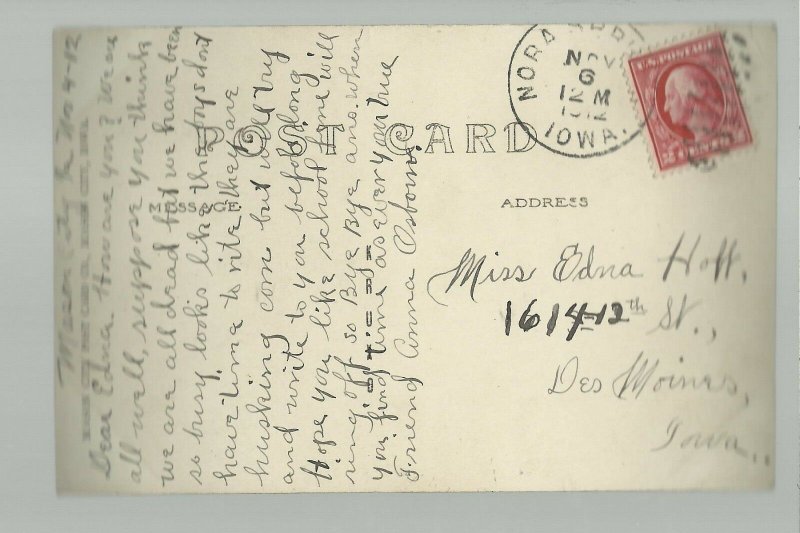 Mason City Ia Nov 4-12
Dear Edna How are you? We are
all well, suppose you think
we are all dead but we have been
so busy looks like the boys dont
have time to rite they are
husking corn but will try
and write to you before long
Hope you like school time will
ring off so Bye Bye ans. when
you find time as ever your true
Friend Anna Osborn
POST CARD
MESSAGE
ADDRESS
NORA
NOV
6
12 M
IOWA.
U.S. POSTAGE
Miss Edna Hoff.
1614-12th St.,
Des Moines,
Iowa..